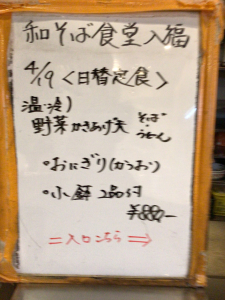 和そば食堂入福
4/19〈日替定食〉
温・冷)
野菜かきあげ天 そば・うどん
・おにぎり(かつお)
・小鉢 2品付
¥880-
=入口こちら⇒